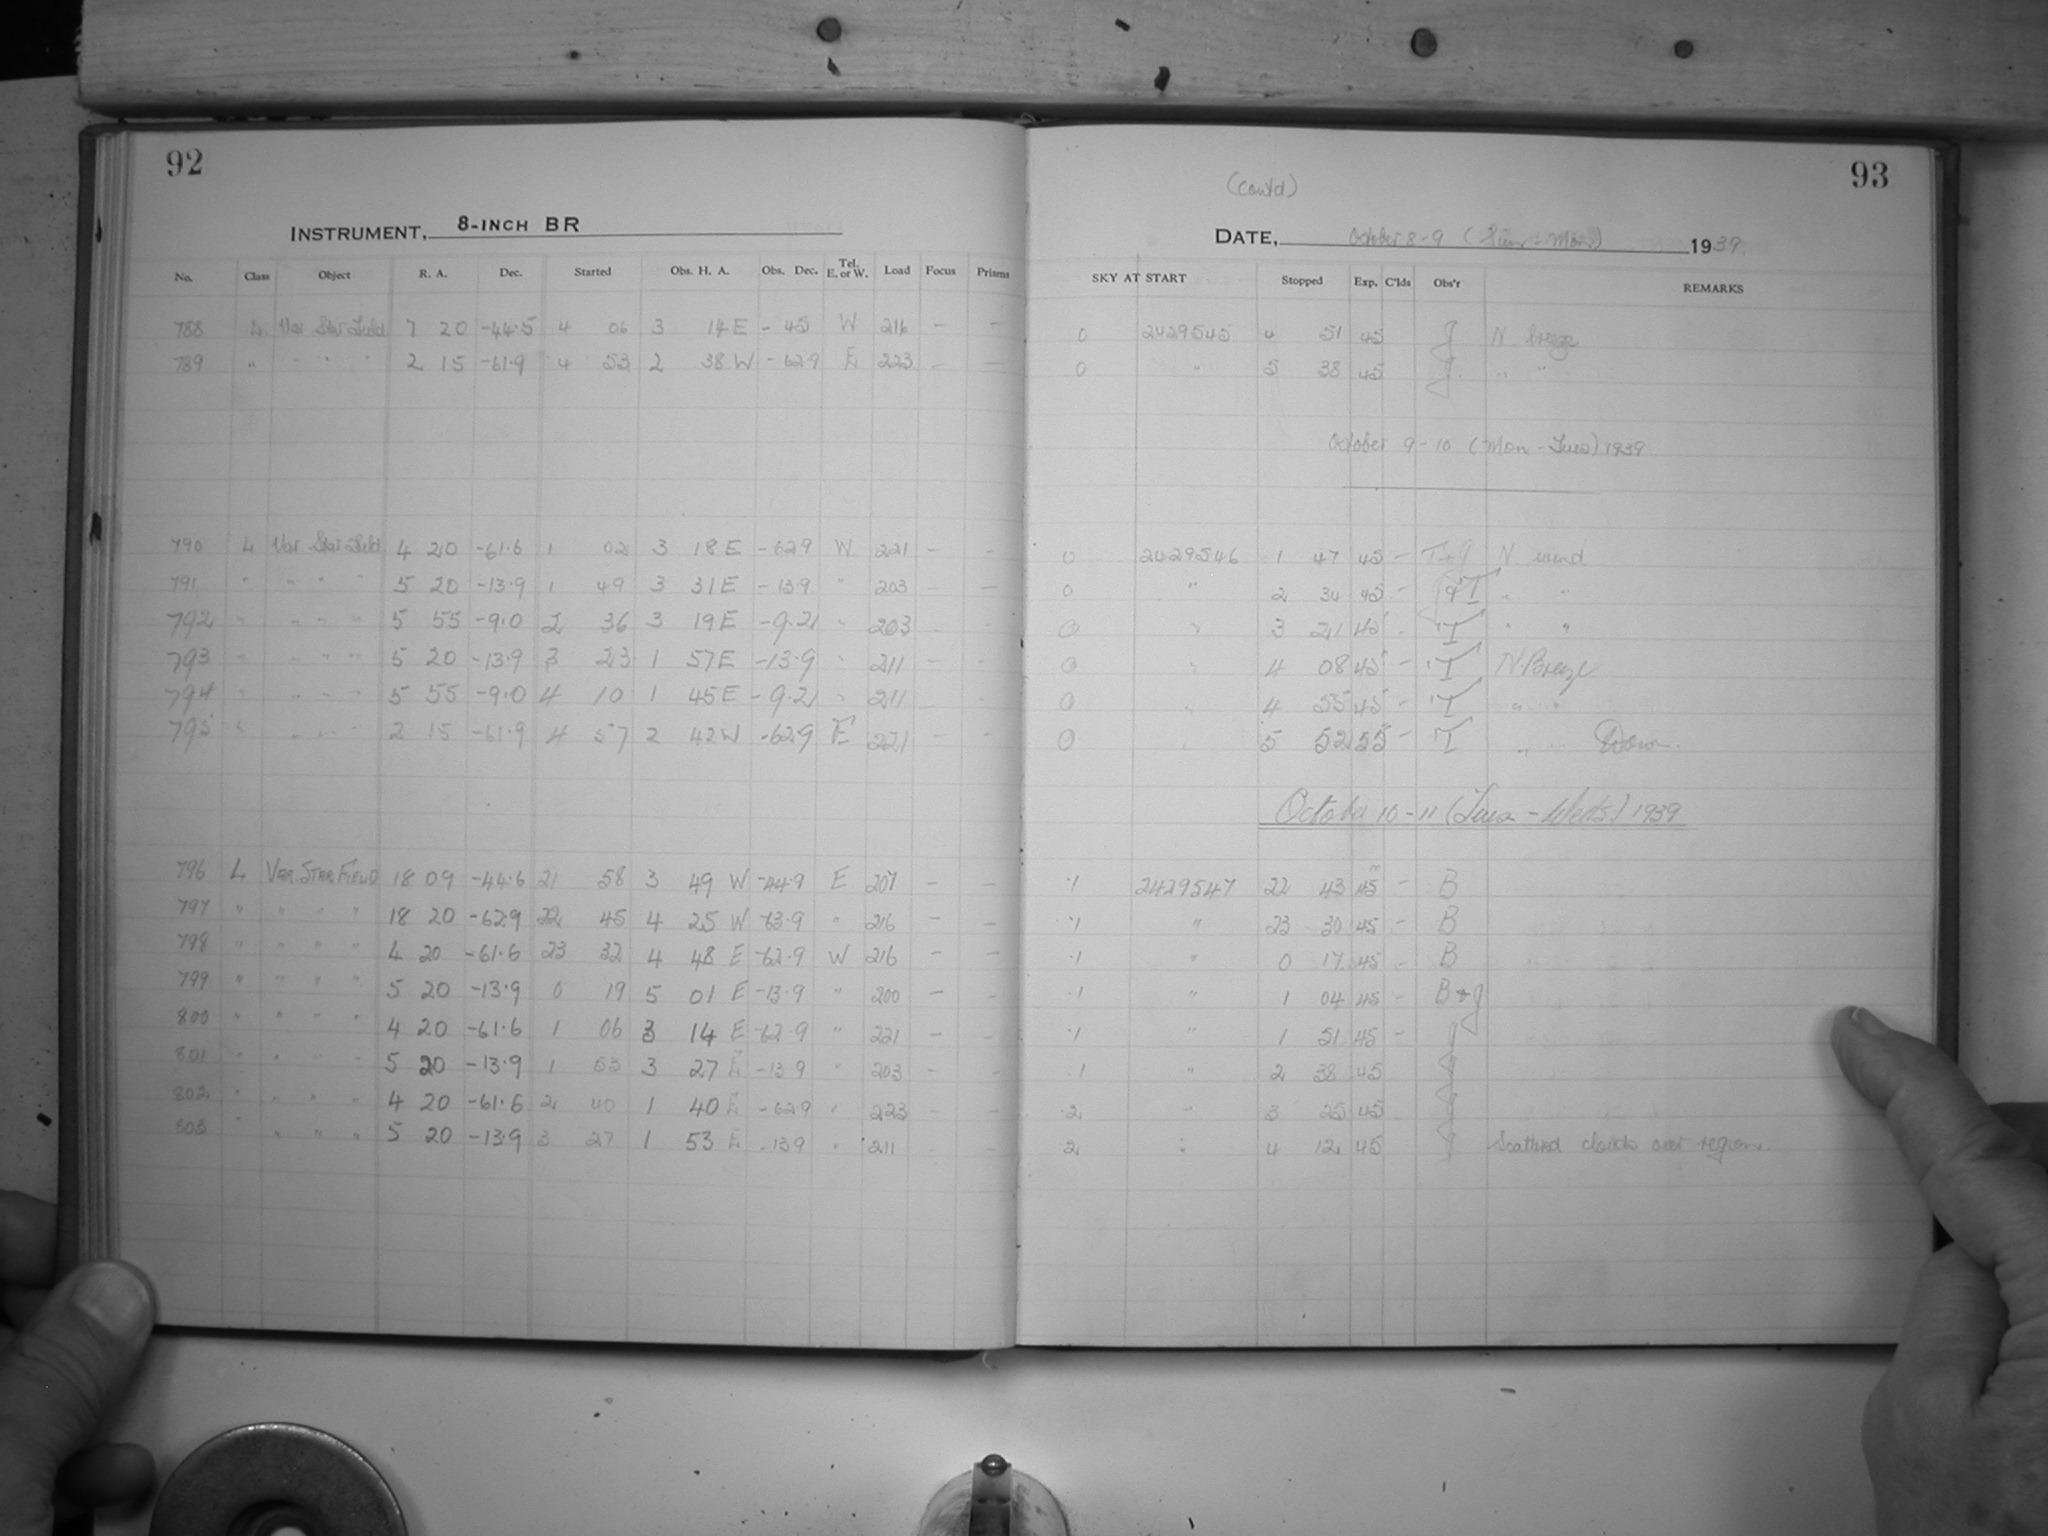 92
INSTRUMENT, 8-INCH BR
No. Class Object R. A. Dec. Started Obs. H. A. Obs. Dec. Tel. E. or W. Load Focus Prisms
788 L Var Star Field 7 20 -44.5 4 06 3 14 E - 45 W 216 — —
789 " " " " 2 15 -61.9 4 53 2 38 W - 62.9 E 223 — —
790 L Var Star Field 4 20 -61.6 1 02 3 18 E -62.9 W 221 — —
791 " " " " 5 20 -13.9 1 49 3 31 E - 13.9 " 203 — —
792 " " " " 5 55 -9.0 2 36 3 19 E -9.2 " 203 — —
793 " " " " 5 20 -13.9 3 23 1 57 E -13.9 " 211 — —
794 " " " " 5 55 -9.0 4 10 1 45 E -9.2 " 211 — —
795 " " " " 2 15 -61.9 4 57 2 42 W -62.9 E 221 — —
796 L VAR. STAR FIELD 18 09 -44.6 21 58 3 49 W -44.9 E 207 — —
797 " " " " 18 20 -62.9 22 45 4 25 W -63.9 " 216 — —
798 " " " " 4 20 -61.6 23 32 4 48 E -62.9 W 216 — —
799 " " " " 5 20 -13.9 0 19 5 01 E -13.9 " 200 — —
800 " " " " 4 20 -61.6 1 06 3 14 E -62.9 " 221 — —
801 " " " " 5 20 -13.9 1 53 3 27 E -13.9 " 203 — —
802 " " " " 4 20 -61.6 2 40 1 40 E -62.9 " 223 — —
803 " " " " 5 20 -13.9 3 27 1 53 E -13.9 " 211 — —
93
(cont'd)
DATE, October 8-9 (Sun - Mon) 1939.
SKY AT START Stopped Exp. C'lds Obs'r REMARKS
0 2429545 4 51 45 J N breeze
0 " 5 38 45 J. " "
October 9-10 (Mon - Tues) 1939
0 2429546 1 47 45 — T+J N. wind
0 " 2 34 45 — J+T " "
0 " 3 21 45 - T " "
0 " 4 08 45 — T N. Breeze
0 " 4 55 45 — T " "
0 " 5 52 55 — T " " Dawn.
October 10-11 (Tues - Weds) 1939
.1 2429547 22 43 45m — B
.1 " 23 30 45 — B
.1 " 0 17 45 — B
.1 " 1 04 45 — B + J
.1 " 1 51 45 — J
.1 " 2 38 45 J
.2 " 3 25 45 J
.2 " 4 12 45 J Scattered clouds over region.